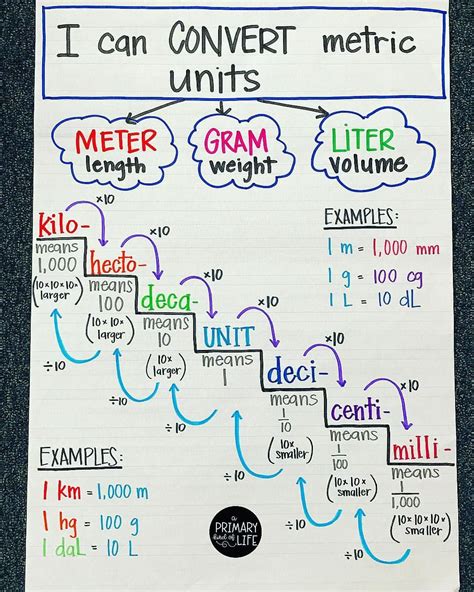 I can CONVERT metric
units
METER
length
GRAM
weight
LITER
volume
kilo-
means
1,000
(10×10×10×
larger)
×10
hecto-
means
100
(10×10×
larger)
×10
deca-
means
10
(10×
larger)
×10
UNIT
means
1
×10
deci-
means
1/10
(10×
smaller)
×10
centi-
means
1/100
(10×10×
smaller)
×10
milli-
means
1/1,000
(10×10×10×
smaller)
÷10
÷10
÷10
÷10
÷10
÷10
EXAMPLES:
1 m = 1,000 mm
1 g = 100 cg
1 L = 10 dL
EXAMPLES:
1 km = 1,000 m
1 hg = 100 g
1 daL = 10 L
a
PRIMARY
kind of
LIFE